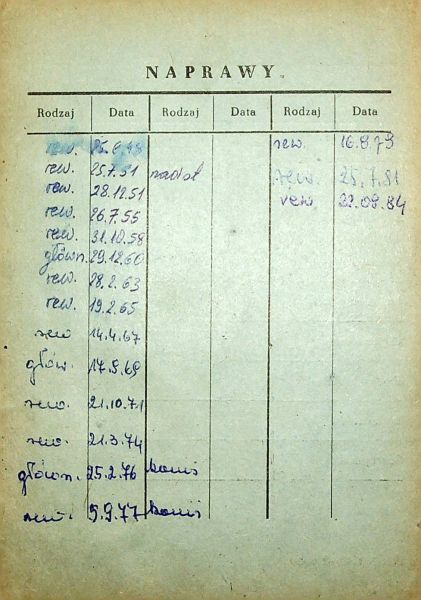 NAPRAWY
Rodzaj Data Rodzaj Data Rodzaj Data
rew. 25.6.48 rew. 16.8.79
rew. 25.7.51 rew. 25.7.81
rew. 28.12.51 rew. 22.09.84
rew. 26.7.55
rew. 31.10.58
główn. 29.12.60
rew. 28.2.63
rew. 19.2.65
rew 14.4.67
głów. 17.9.69
rew. 21.10.71
rew. 21.3.74
główn. 25.2.76
rew. 5.9.77